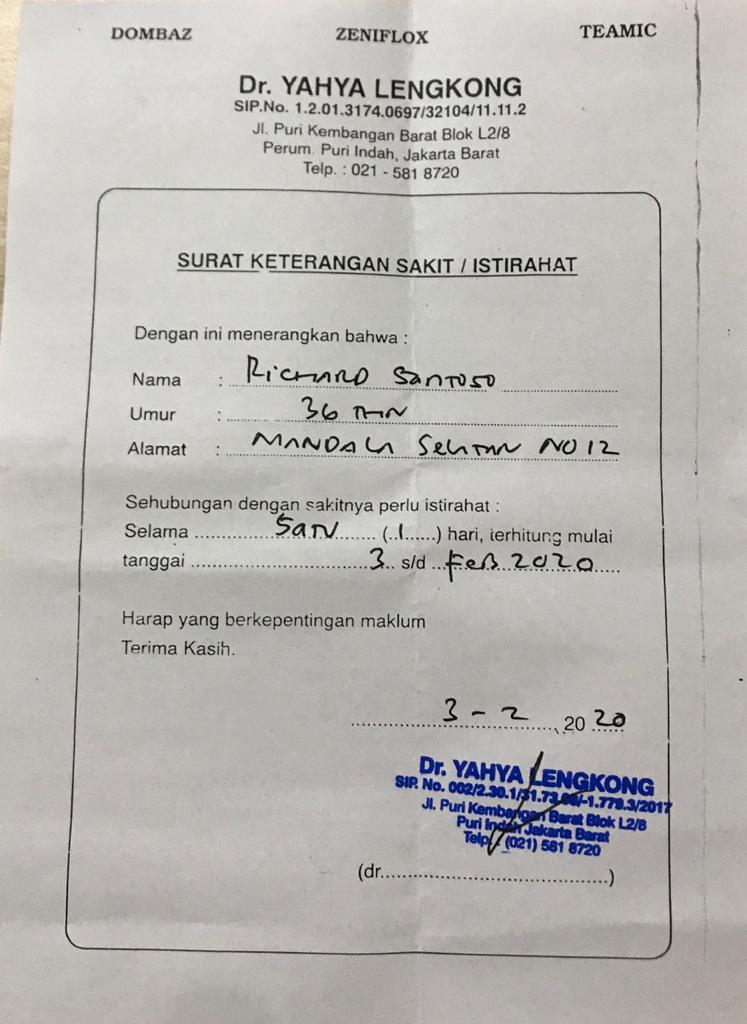 DOMBAZ ZENIFLOX TEAMIC
Dr. YAHYA LENGKONG
SIP.No. 1.2.01.3174.0697/32104/11.11.2
Jl. Puri Kembangan Barat Blok L2/8
Perum. Puri Indah, Jakarta Barat
Telp. : 021 - 581 8720
SURAT KETERANGAN SAKIT / ISTIRAHAT
Dengan ini menerangkan bahwa :
Nama : RICHARD SANTOSO
Umur : 36 THN
Alamat : MANDALA SELATAN NO 12
Sehubungan dengan sakitnya perlu istirahat :
Selama SATU (1) hari, terhitung mulai
tanggal 3 s/d FEB 2020
Harap yang berkepentingan maklum
Terima Kasih.
3 - 2, 20 20
Dr. YAHYA LENGKONG
SIP. No. 002/2.30.1/31.73. /-1.779.3/2017
Jl. Puri Kembangan Barat Blok L2/8
Puri Indah Jakarta Barat
Telp. : (021) 581 8720
(dr..........................................)